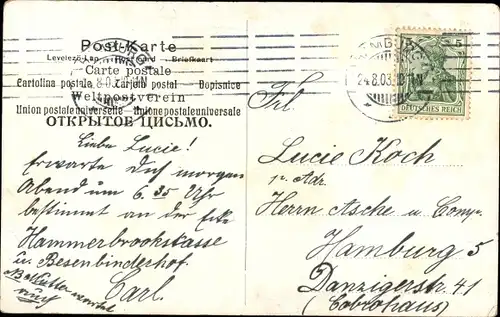 Post-Karte
Levelező-Lap Briefkaart
Carte postale
Cartolina postale Tarjeta postal Dopisnice
Weltpostverein
Union postale universelle Unione postale universale
ОТКРЫТОЕ ПИСЬМО.
Liebe Lucie!
Erwarte Dich morgen
Abend um 6.35 Uhr
bestimmt an der Ecke
Hammerbrookstrasse
u. Besenbinderhof.
Carl.
wartet
auch
HAMBURG
24.8.03.
5 5
DEUTSCHES REICH
Frl.
Lucie Koch
pr. Adr.
Herrn Asche u. Comp.
Hamburg 5
Danzigerstr. 41